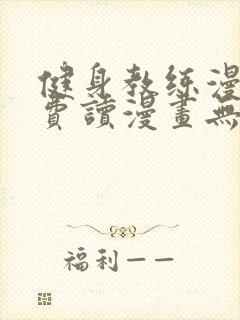 健身教练漫
費讀漫畫無
福利一一